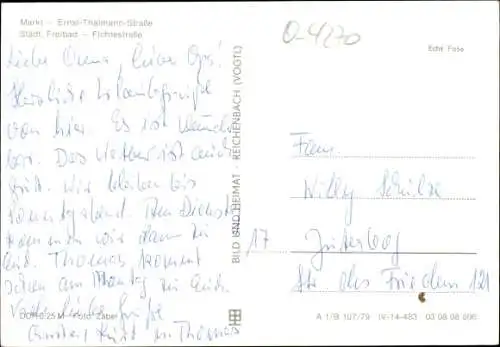 Markt – Ernst-Thälmann-Straße
Städt. Freibad – Fichtestraße
O-4270
Echt Foto
Liebe Oma, lieber Opa!
Herzliche Urlaubsgrüße
von hier. Es ist wunder-
bar. Das Wetter ist auch
gut. Wir bleiben bis
Am Dienst
wir dann zu
Euch. Thomas kommt
schon am Montag zu Euch.
Viele liebe Grüße
und Thomas
BILD UND HEIMAT · REICHENBACH (VOGTL)
Fam.
Willy Schulze
17 Jüterbog
Str. des Friedens 121
DDR 0,25 M Foto: Zabel
A 1/B 107/79 IV-14-483 03 08 08 806